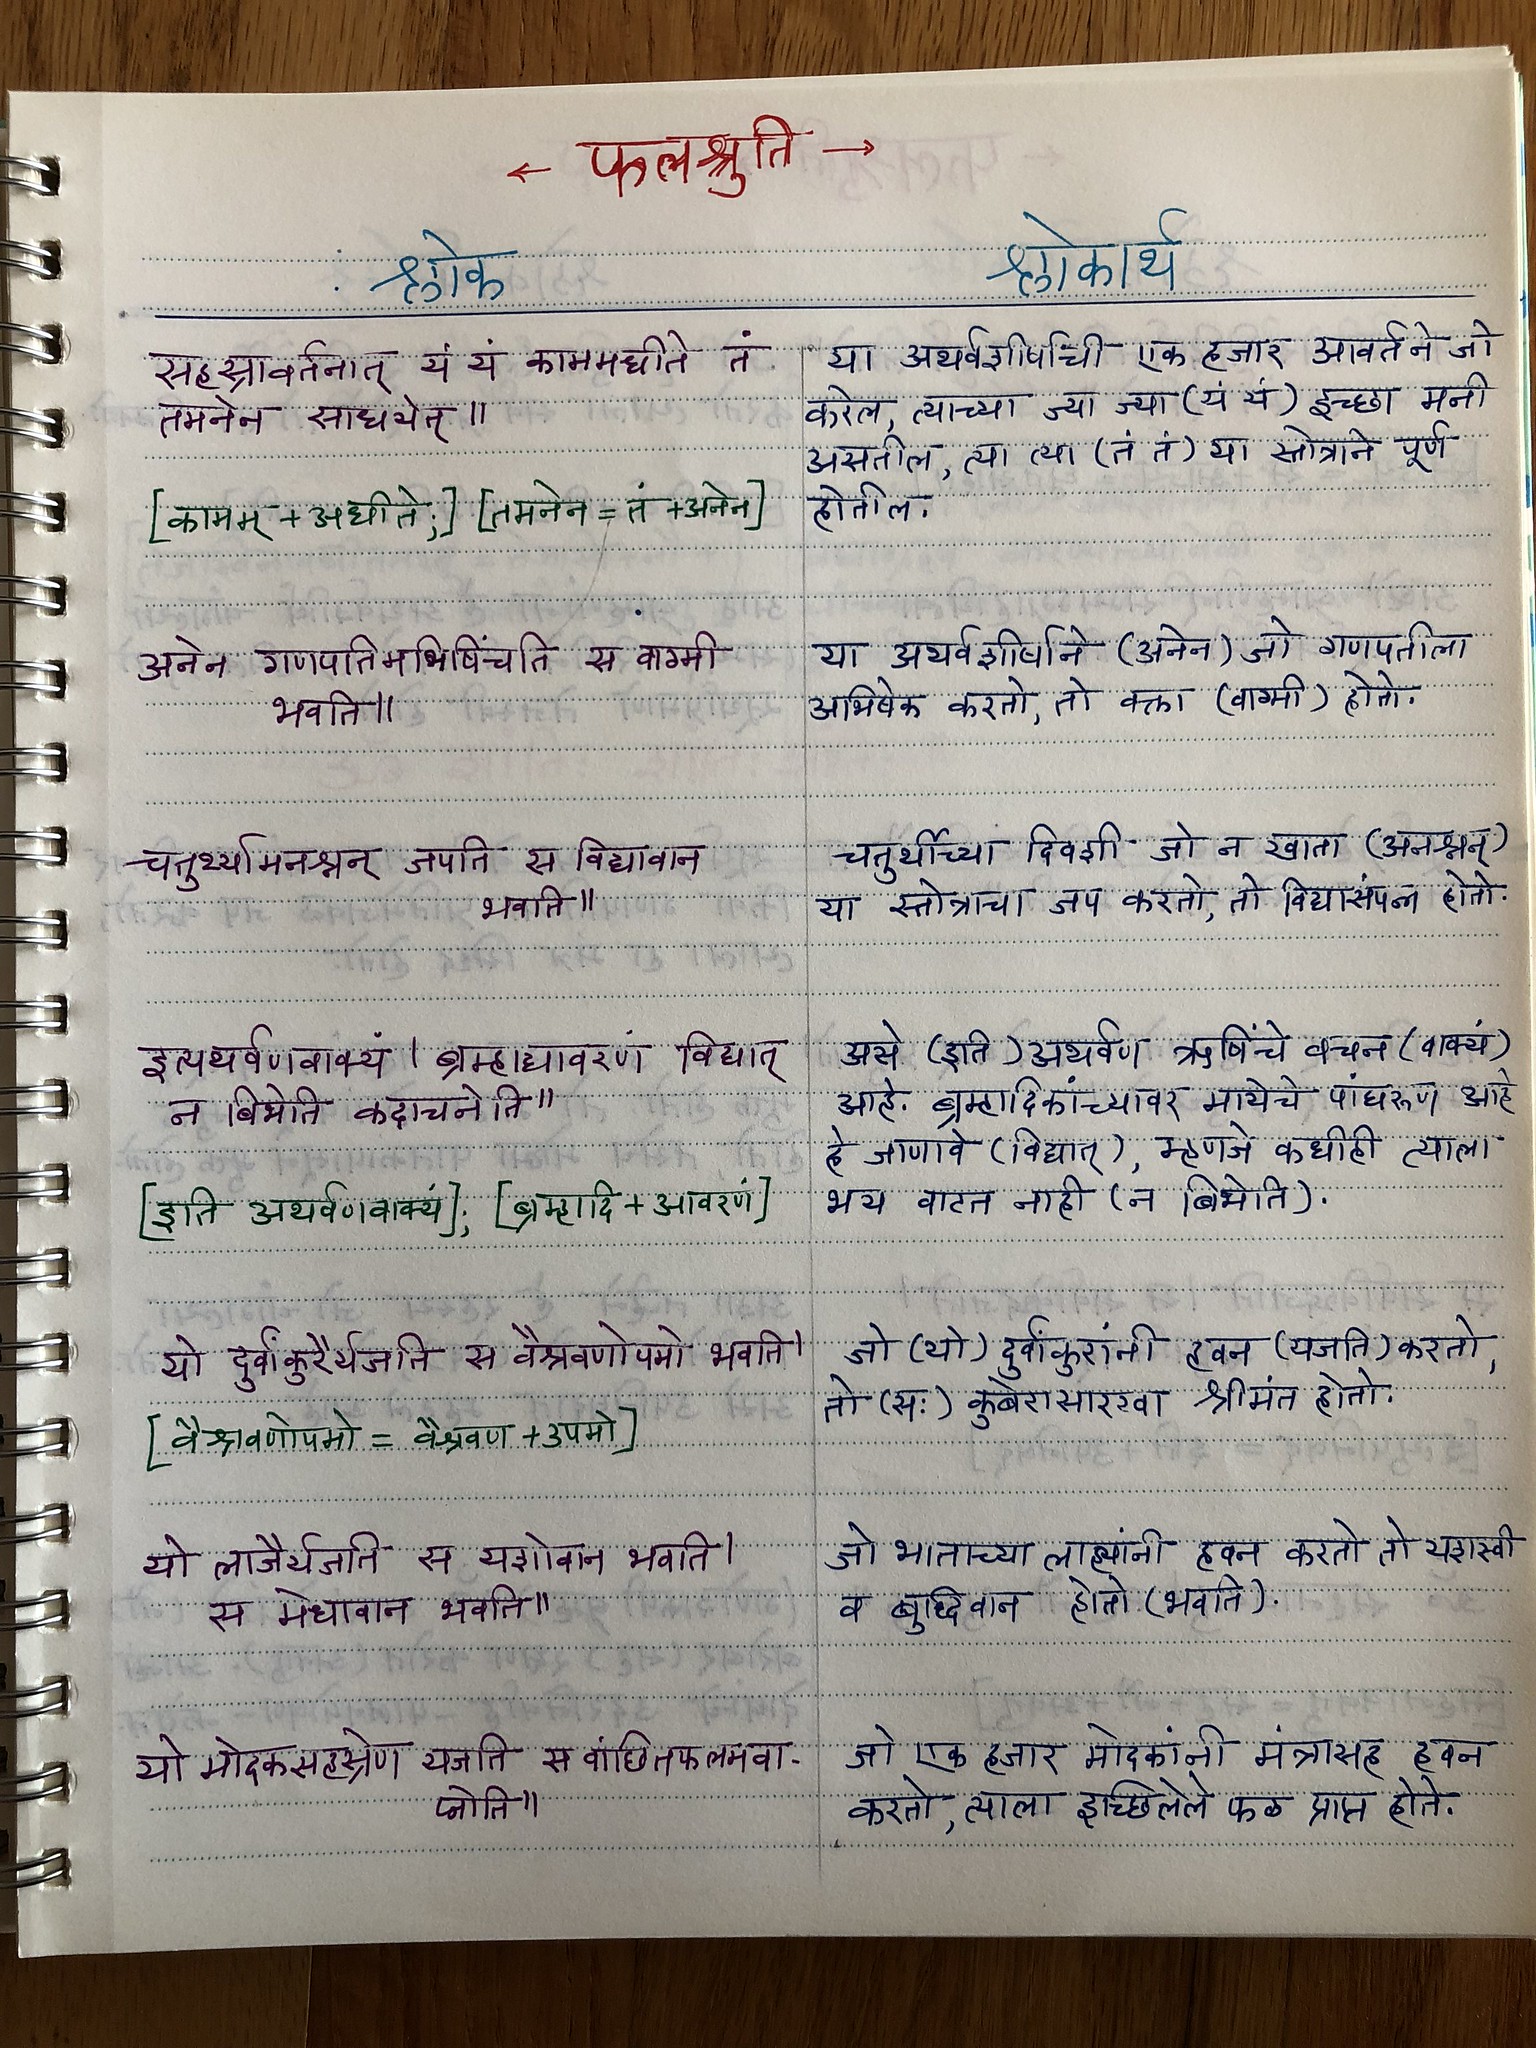 ← फलश्रुति →
श्लोक
श्लोकार्थ
सहस्रावर्तनात् यं यं काममधीते तं
तमनेन साधयेत्॥
[कामम् + अधीते;] [तमनेन = तं + अनेन]
या अथर्वशीर्षाची एक हजार आवर्तने जो
करेल, त्याच्या ज्या ज्या (यं यं) इच्छा मनी
असतील, त्या त्या (तं तं) या स्तोत्राने पूर्ण
होतील.
अनेन गणपतिमभिषिंचति स वाग्मी
भवति॥
या अथर्वशीर्षाने (अनेन) जो गणपतीला
अभिषेक करतो, तो वक्ता (वाग्मी) होतो.
चतुर्थ्यामनश्नन् जपति स विद्यावान
भवति॥
चतुर्थीच्या दिवशी जो न खाता (अनश्नन्)
या स्तोत्राचा जप करतो, तो विद्यासंपन्न होतो.
इत्यथर्वणवाक्यं। ब्रम्हाद्यावरणं विद्यात्
न बिभेति कदाचनेति॥
[इति अथर्वणवाक्यं]; [ब्रम्हादि + आवरणं]
असे (इति) अथर्वण ऋषिंचे वचन (वाक्यं)
आहे. ब्रम्हादिकांच्यावर मायेचे पांघरूण आहे
हे जाणावे (विद्यात्), म्हणजे कधीही त्याला
भय वाटत नाही (न बिभेति).
यो दुर्वांकुरैर्यजति स वैश्रवणोपमो भवति।
[वैश्रवणोपमो = वैश्रवण + उपमो]
जो (यो) दुर्वांकुरांनी हवन (यजति) करतो,
तो (सः) कुबेरासारखा श्रीमंत होतो.
यो लाजैर्यजति स यशोवान भवति।
स मेधावान भवति॥
जो भाताच्या लाह्यांनी हवन करतो तो यशस्वी
व बुद्धिवान होतो (भवति).
यो मोदकसहस्रेण यजति स वांछितफलमवा-
प्नोति॥
जो एक हजार मोदकांनी मंत्रासह हवन
करतो, त्याला इच्छिलेले फळ प्राप्त होते.